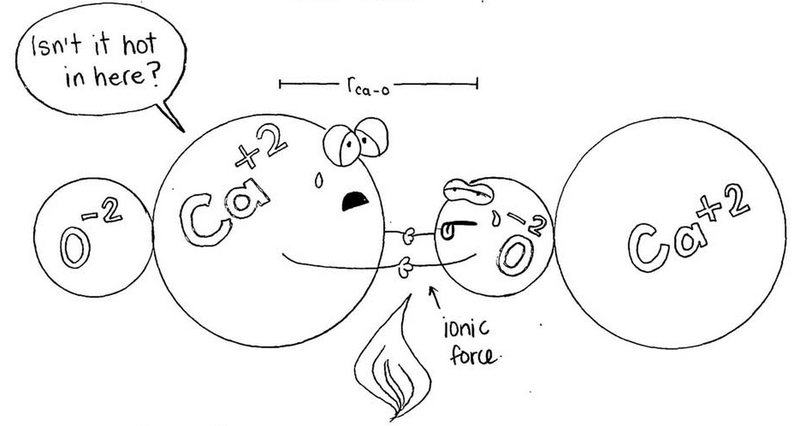 Isn't it hot
in here?
rca-o
Ca+2
O-2
O-2
Ca+2
ionic
force.